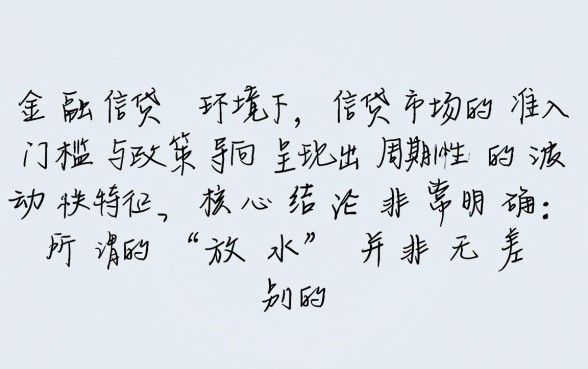 金融信贷 环境下，信贷市场的准入
门槛与政策导向呈现出周期性的波
动 特征，核心结论非常明确：
所谓的“放水”并非无差
别的